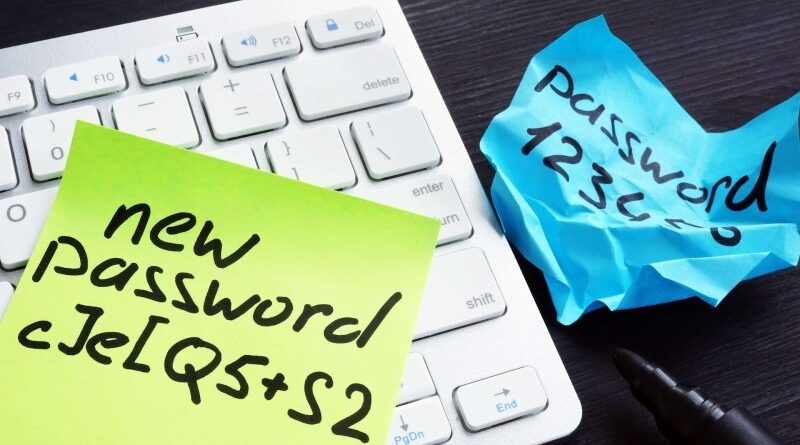 new
password
c]e[Q5+S2
password
F9
F10
F11
F12
Del
delete
enter
shift
End
PgDn